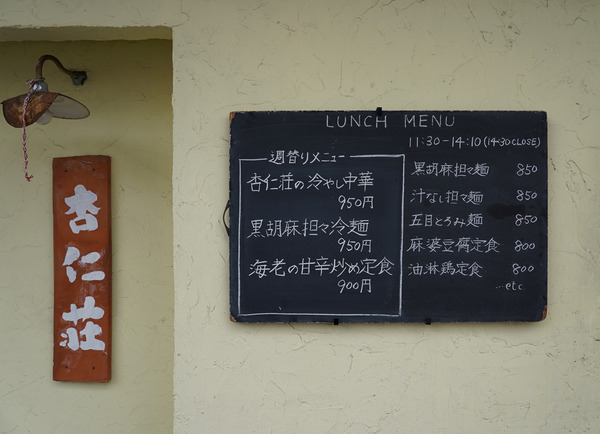 杏仁荘
LUNCH MENU
11:30-14:10(14:30CLOSE)
週替りメニュー
杏仁荘の冷やし中華
950円
黒胡麻担々冷麺
950円
海老の甘辛炒め定食
900円
黒胡麻担々麺 850
汁なし担々麺 850
五目とろみ麺 850
麻婆豆腐定食 800
油淋鶏定食 800
...etc